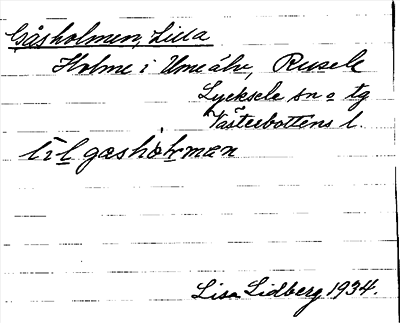 Gåsholmen, Lilla
Holme i Umeälv, Rusele
Lycksele sn o tg
Västerbottens l.
Lisa Lidberg 1934.